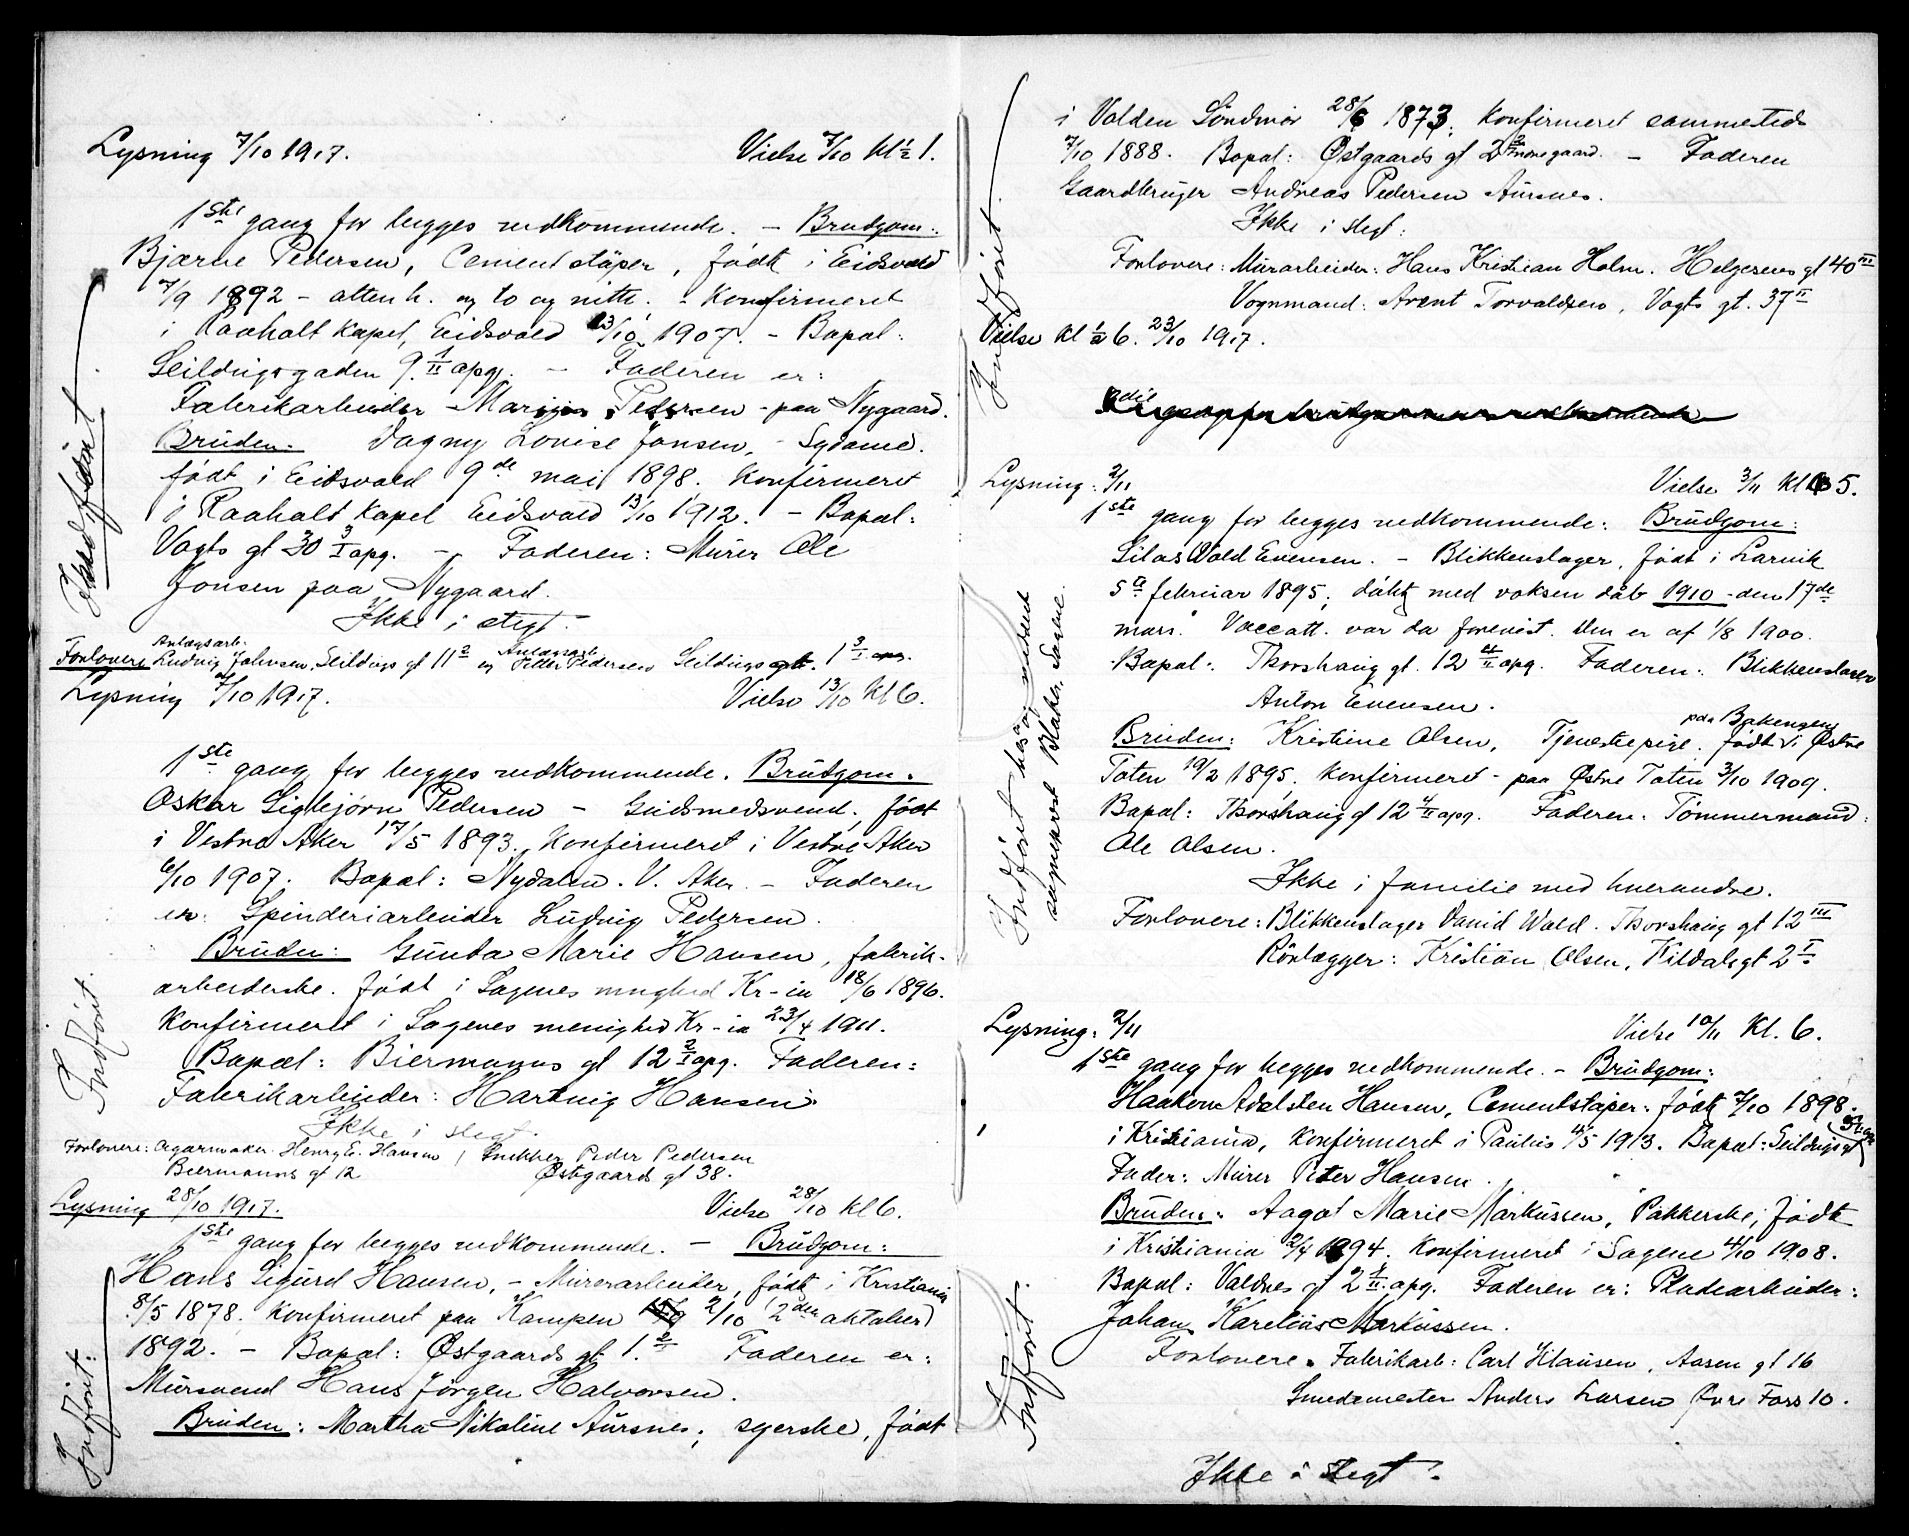 Lysning 7/10 1917. Vielse 7/10 Kl ½ 1.
1ste gang for begges vedkommende. – Brudgom:
Bjarne Pedersen, Cementstöper, födt i Eidsvold
7/9 1892 – atten h. og to og nitti. – Konfirmeret
i Raaholt Kapel, Eidsvold 13/10 1907. – Bopæl:
Seildugsgaden 9. 1/II opg. – Faderen er:
Fabrikarbeider Pedersen – paa Nygaard.
Bruden: Dagny Lovise Jonsen, – Sydame.
födt i Eidsvold 9de mai 1898. Konfirmeret
i Raaholt Kapel Eidsvold 13/10 1912. – Bopæl:
Vogts gt 30 3/I opg. – Faderen: Murer Ole
Jonsen paa Nygaard.
Ikke i slegt.
Indfört
Anlægsarb. Anlægsarb.
Forlovere Ludvig Johnsen, Seildugs gt 11 2 og Petter Pedersen Seildugsgt. 1 3/I opg.
Lysning 7/10 1917. Vielse 13/10 Kl 6.
1ste gang for begges vedkommende. Brudgom:
Oskar Sigbjörn Pedersen – Gulsmedsvend, födt
i Vestre Aker 17/5 1893. Konfirmeret i Vestre Aker
6/10 1907. Bopæl: Nydalen. V. Aker. – Faderen
er: Spinderiarbeider Ludvig Pedersen.
Bruden: Gunda Marie Hansen, fabrik-
arbeiderske. födt i Sagenes menighed Kr-ia 18/6 1896.
Konfirmeret i Sagenes menighed Kr-ia 23/4 1911.
Bopæl: Biermanns gt 12 2/I opg. Faderen:
Fabrikarbeider: Hartvig Hansen
Ikke i slegt.
Indfört.
Forlovere: Cigarmaker Henry E. Hansen / Snekker Peder Pedersen
Biermanns gt 12 Östgaards gt 38.
Lysning 28/10 1917. Vielse 28/10 Kl 6.
1ste gang for begges vedkommende. – Brudgom:
Hans Sigurd Hansen, – Murerarbeider, födt i Kristiania
8/5 1878. Konfirmeret paa Kampen 2/10 (2den oktober)
1892. – Bopæl: Østgaards gt 1. 2 Faderen er:
Mursvend Hans Jörgen Halvorsen.
Bruden: Martha Nikoline Aursnes, syerske, födt
Indfört.
i Volden Söndmör 28/6 1873. Konfirmeret sammesteds
7/10 1888. Bopæl: Østgaards gt 2 – Faderen
Gaardbruger Andreas Pedersen Aursnes.
Ikke i slegt.
Forlovere: Murarbeider: Hans Kristian Holm. Helgesens gt 40 III
Vognmand: Arent Torvaldsen, Vogts gt. 37 II
Vielse Kl ½ 6. 23/10 1917.
Indfört.
Lysning: 2/11 Vielse 3/11 Kl 5.
1ste gang for begges vedkommende: Brudgom:
Silas Wald Evensen. – Blikkenslager, födt i Larvik
5te februar 1895, döbt med voksen dåb 1910 – den 17de
mars. Vaccatt. var da forevist. Den er af 1/8 1900.
Bopæl: Thorshaug gt. 12 4/II opg. Faderen: Blikkenslager
Anton Evensen.
paa Bakengen
Bruden: Kristine Olsen, Tjenestepige. födt i Østre
Toten 19/2 1895, Konfirmeret – paa Østre Toten 3/10 1909.
Bopæl: Thorshaug gt 12 4/II opg. Faderen: Tömmermand:
Ole Olsen.
Ikke i familie med hverandre.
Forlovere: Blikkenslager David Wald. Thorshaug gt 12 III
Rörlægger: Kristian Olsen, Kildals gt 2 I
Lysning: 2/11 Vielse 10/11 Kl. 6.
1ste gang for begges vedkommende. – Brudgom:
Haakon Adelsten Hansen, Cementstöper. födt 7/10 1898.
i Kristiania, Konfirmeret i Paulus 4/5 1913. Bopæl: Seildugsgt
Fader: Murer Peter Hansen.
Bruden: Aagot Marie Markussen, Pakkerske, födt
i Kristiania 2/4 1894. Konfirmeret i Sagene 4/10 1908.
Bopæl: Valdres gt 2 opg. Faderen er: Pladearbeider:
Johan Karelius Markussen.
Forlovere. Fabrikarb: Carl Klausen, Aasen gt 16
Smedemester Anders Larsen Övre Foss 10.
Indfört.
Ikke i slegt.